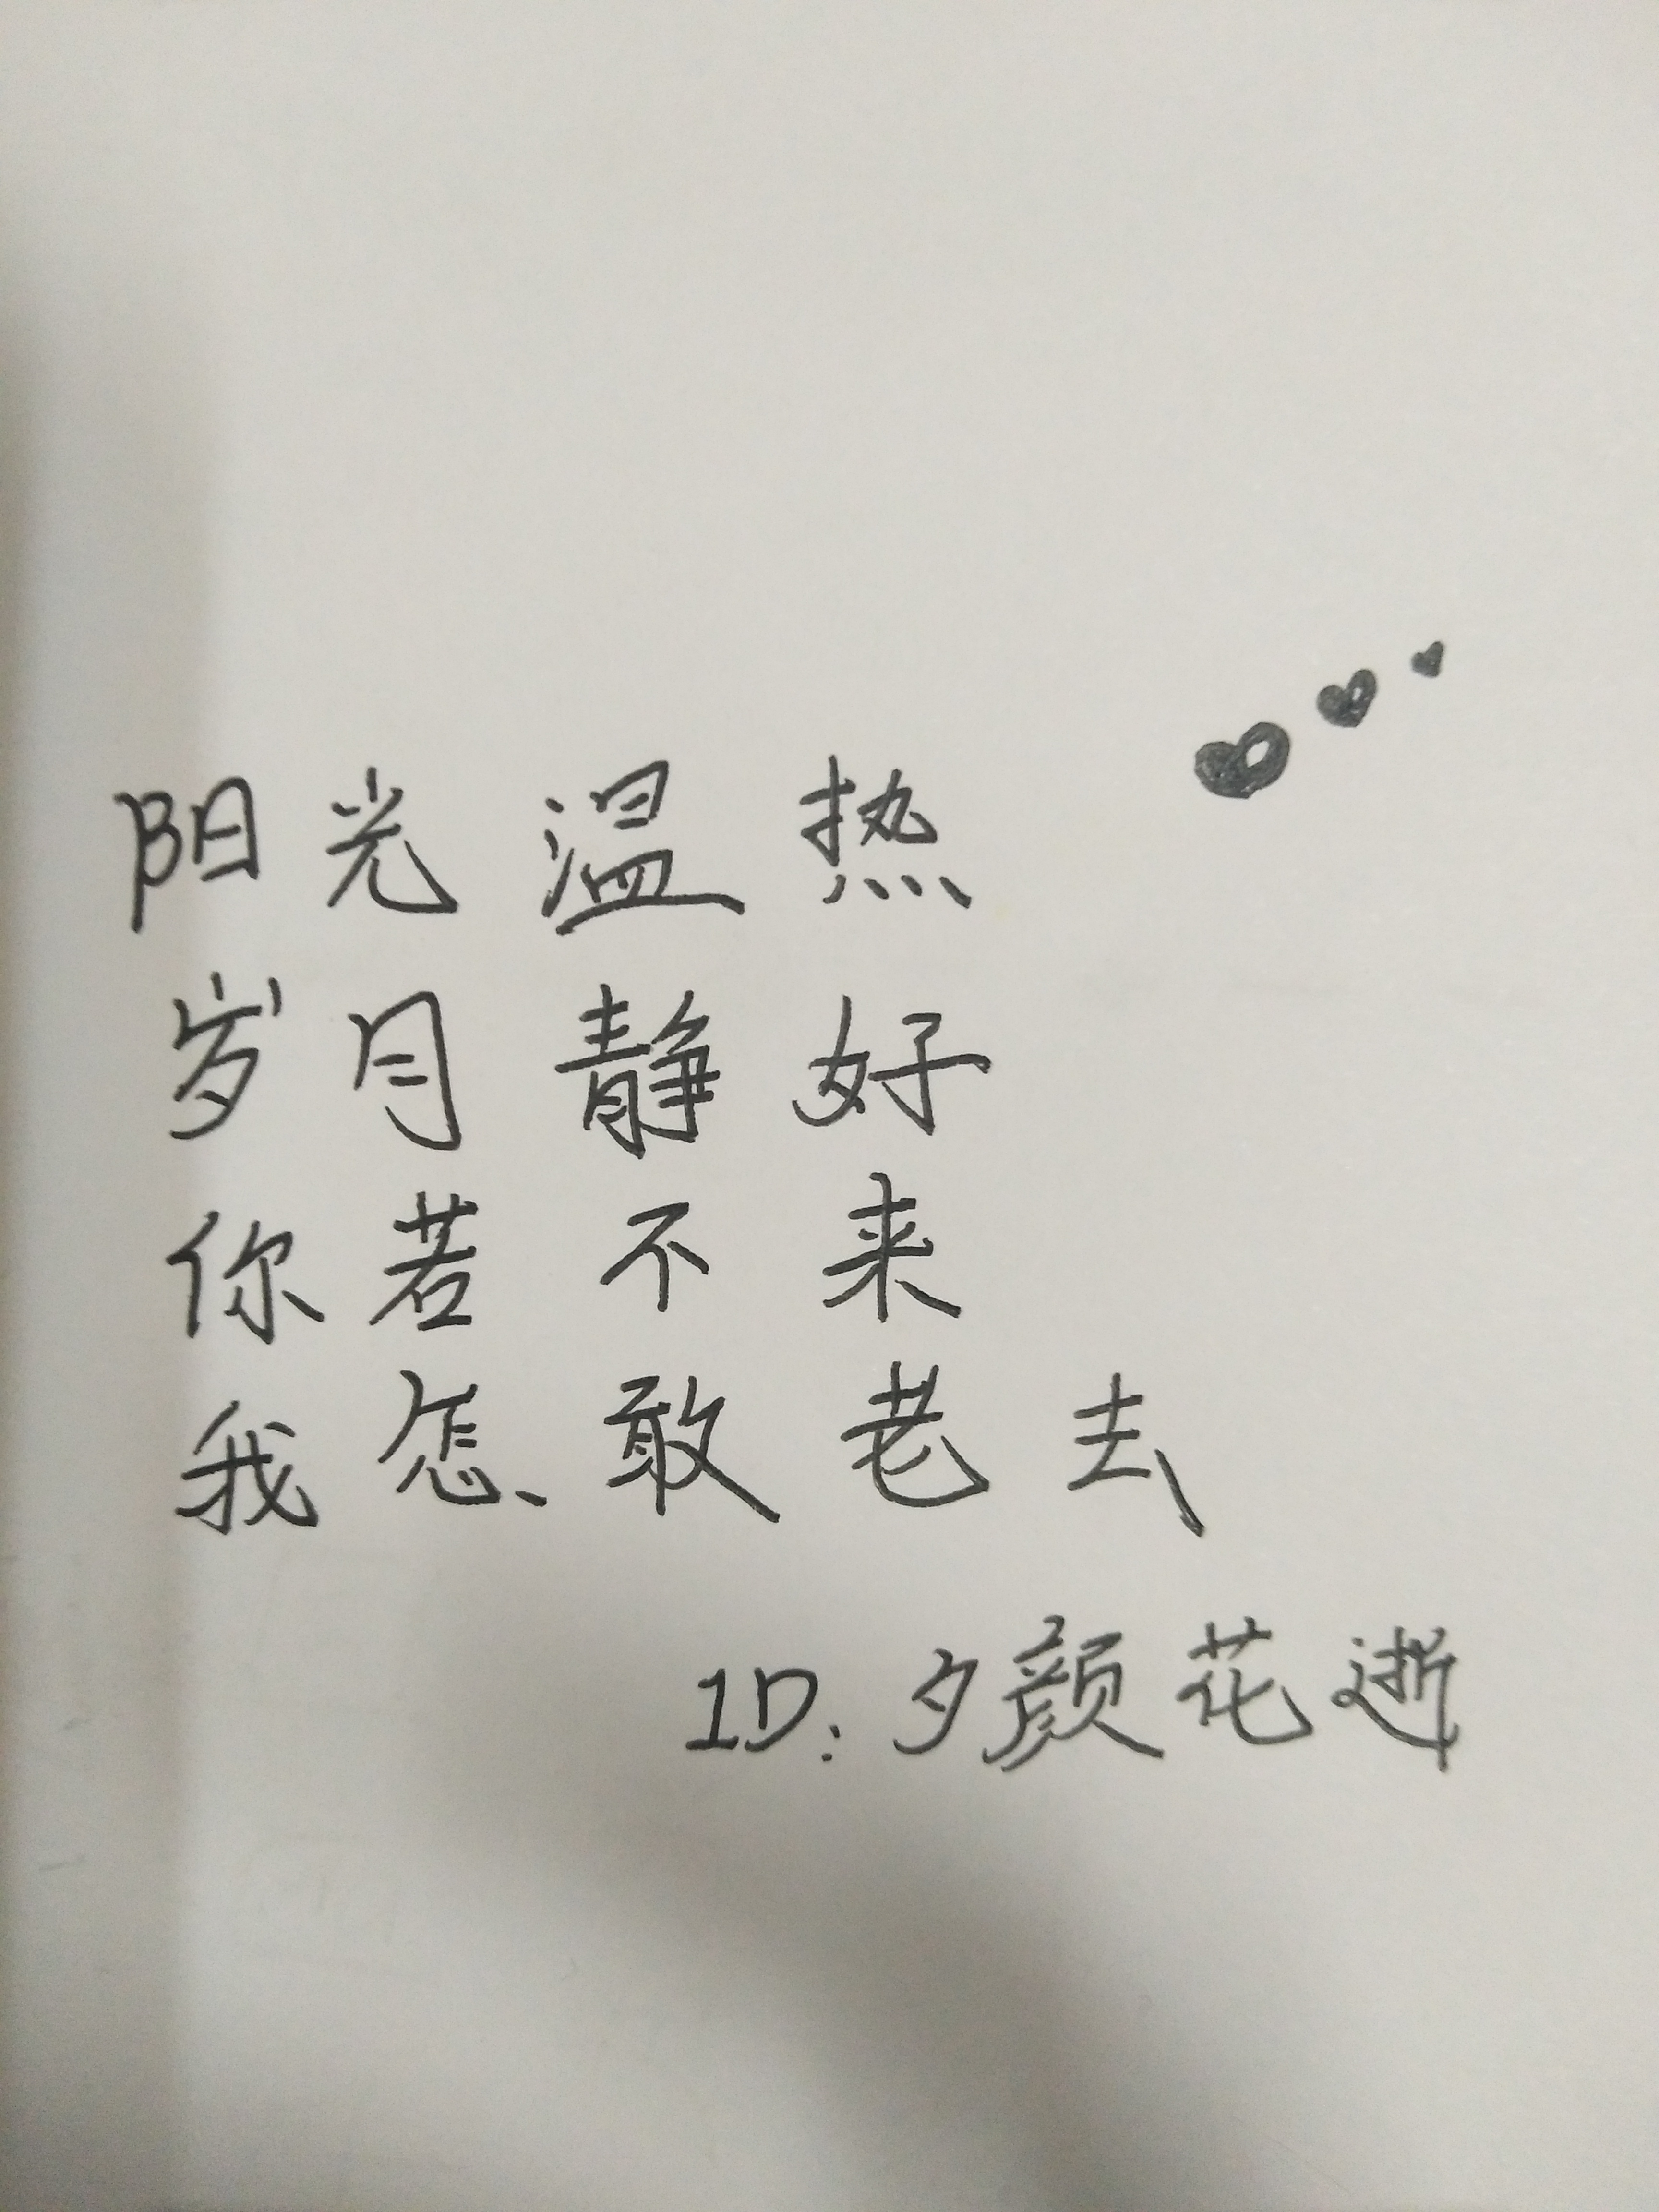 阳光温热
岁月静好
你若不来
我怎敢老去
ID:夕颜花逝